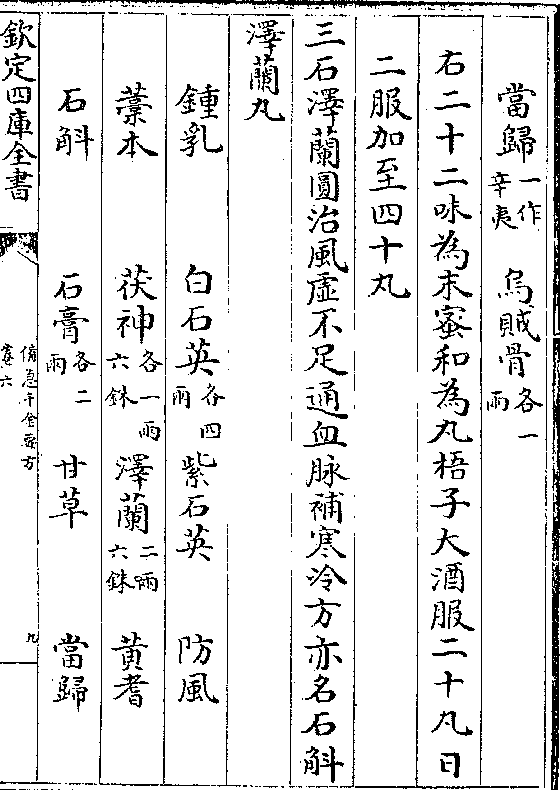 當歸一作辛夷 烏賊骨各一兩
右二十二味為末蜜和為丸梧子大酒服二十丸日
二服加至四十丸
三石澤蘭圓治風虛不足通血脉補寒冷方亦名石斛
澤蘭丸
鍾乳 白石英各四兩 紫石英 防風
藁本 茯神各一兩六銖 澤蘭二兩六銖 黄耆
石斛 石膏各二兩 甘草 當歸
欽定四庫全書
備急千金要方
卷六
九